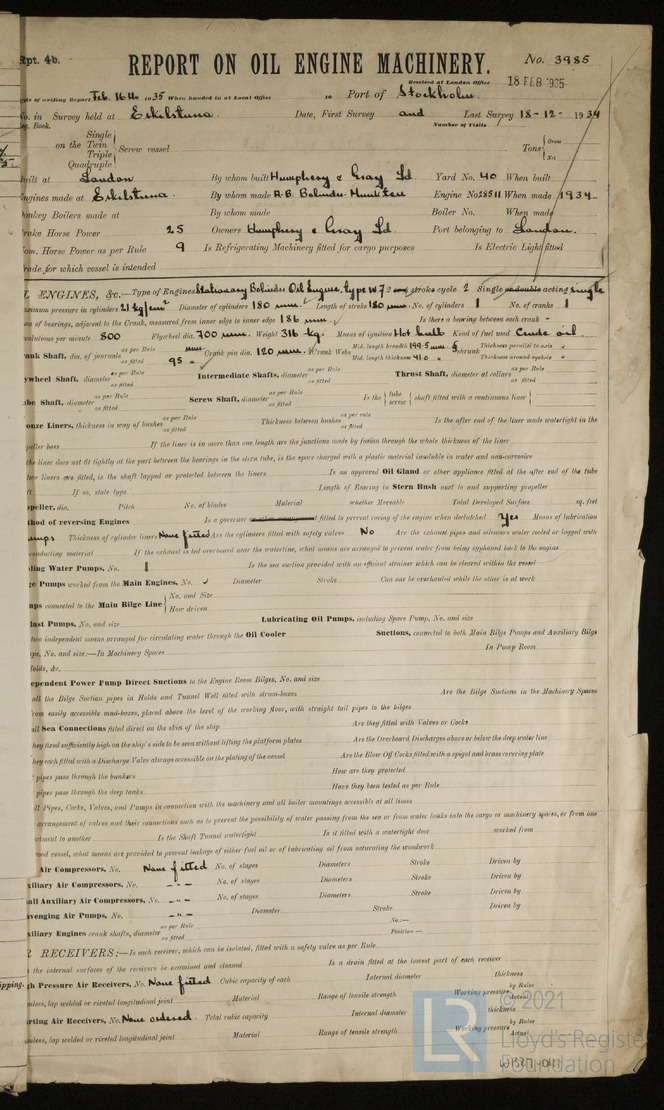 Rpt. 4b.
REPORT ON OIL ENGINE MACHINERY.
No. 3985
Received at London Office 18 FEB 1935
of writing Report Feb. 16th 1935 When handed in at Local Office to Port of Stockholm
No. in Survey held at Eskilstuna Date, First Survey and Last Survey 18-12-1934
Reg. Book. Number of Visits
Single
on the Twin
Triple
Quadruple
Screw vessel
Tons Gross
Net
Built at London By whom built Humphery & Gray Ld Yard No. 40 When built
Engines made at Eskilstuna. By whom made A-B. Bolinder-Munktell Engine No. 28511 When made 1934
Donkey Boilers made at By whom made Boiler No. When made
Brake Horse Power 25 Owners Humphery & Gray Ld. Port belonging to London.
Nom. Horse Power as per Rule 9 Is Refrigerating Machinery fitted for cargo purposes Is Electric Light fitted
Trade for which vessel is intended
OIL ENGINES, &c.—Type of Engines Stationary Bolinder Oil Engine, type W7 2 or 4 stroke cycle 2 Single or double acting single
Maximum pressure in cylinders 21 kg/cm² Diameter of cylinders 180 mm. Length of stroke 180 mm. No. of cylinders 1 No. of cranks 1
of bearings, adjacent to the Crank, measured from inner edge to inner edge 186 mm. Is there a bearing between each crank -
Revolutions per minute 800 Flywheel dia. 700 mm. Weight 316 kg. Means of ignition Hot bulb Kind of fuel used Crude oil
Crank Shaft, dia. of journals as per Rule mm. as fitted 95 Crank pin dia. 120 mm. Crank Webs Mid. length breadth 199.5 mm. Mid. length thickness 41.0 shrunk Thickness parallel to axis Thickness around eyehole
Flywheel Shaft, diameter as per Rule as fitted Intermediate Shafts, diameter as per Rule as fitted Thrust Shaft, diameter at collars as per Rule as fitted
Tube Shaft, diameter as per Rule as fitted Screw Shaft, diameter as per Rule as fitted Is the tube screw shaft fitted with a continuous liner
Bronze Liners, thickness in way of bushes as per Rule as fitted Thickness between bushes as per rule as fitted Is the after end of the liner made watertight in the
propeller boss If the liner is in more than one length are the junctions made by fusion through the whole thickness of the liner
the liner does not fit tightly at the part between the bearings in the stern tube, is the space charged with a plastic material insoluble in water and non-corrosive
two liners are fitted, is the shaft lapped or protected between the liners Is an approved Oil Gland or other appliance fitted at the after end of the tube
If so, state type Length of Bearing in Stern Bush next to and supporting propeller
Propeller, dia. Pitch No. of blades Material whether Moveable Total Developed Surface sq. feet
Method of reversing Engines Is a governor or other arrangement fitted to prevent racing of the engine when declutched Yes Means of lubrication
pumps Thickness of cylinder liners None fitted Are the cylinders fitted with safety valves No Are the exhaust pipes and silencers water cooled or lagged with
conducting material If the exhaust is led overboard near the waterline, what means are arranged to prevent water from being syphoned back to the engine
Cooling Water Pumps, No. 1 Is the sea suction provided with an efficient strainer which can be cleared within the vessel
Bilge Pumps worked from the Main Engines, No. Diameter Stroke Can one be overhauled while the other is at work
Pumps connected to the Main Bilge Line No. and Size
How driven
Ballast Pumps, No. and size Lubricating Oil Pumps, including Spare Pump, No. and size
two independent means arranged for circulating water through the Oil Cooler Suctions, connected to both Main Bilge Pumps and Auxiliary Bilge
Pumps, No. and size:—In Machinery Spaces In Pump Room
Holds, &c.
Independent Power Pump Direct Suctions to the Engine Room Bilges, No. and size
all the Bilge Suction pipes in Holds and Tunnel Well fitted with strum-boxes Are the Bilge Suctions in the Machinery Spaces
from easily accessible mud-boxes, placed above the level of the working floor, with straight tail pipes to the bilges
all Sea Connections fitted direct on the skin of the ship Are they fitted with Valves or Cocks
they fixed sufficiently high on the ship's side to be seen without lifting the platform plates Are the Overboard Discharges above or below the deep water line
they each fitted with a Discharge Valve always accessible on the plating of the vessel Are the Blow Off Cocks fitted with a spigot and brass covering plate
pipes pass through the bunkers How are they protected
pipes pass through the deep tanks Have they been tested as per Rule
all Pipes, Cocks, Valves, and Pumps in connection with the machinery and all boiler mountings accessible at all times
arrangement of valves and their connections such as to prevent the possibility of water passing from the sea or from water tanks into the cargo or machinery spaces, or from one
compartment to another Is the Shaft Tunnel watertight Is it fitted with a watertight door worked from
wood vessel, what means are provided to prevent leakage of either fuel oil or of lubricating oil from saturating the woodwork
Air Compressors, No. None fitted No. of stages Diameters Stroke Driven by
Auxiliary Air Compressors, No. -"- No. of stages Diameters Stroke Driven by
Small Auxiliary Air Compressors, No. -"- No. of stages Diameters Stroke Driven by
Scavenging Air Pumps, No. -"- Diameter Stroke Driven by
Auxiliary Engines crank shafts, diameter as per Rule as fitted No.:— Position —
AIR RECEIVERS:—Is each receiver, which can be isolated, fitted with a safety valve as per Rule
the internal surfaces of the receivers be examined and cleaned Is a drain fitted at the lowest part of each receiver
High Pressure Air Receivers, No. None fitted Cubic capacity of each Internal diameter thickness
Seamless, lap welded or riveted longitudinal joint Material Range of tensile strength Working pressure by Rules Actual
Starting Air Receivers, No. None ordered. Total cubic capacity Internal diameter thickness
Seamless, lap welded or riveted longitudinal joint Material Range of tensile strength Working pressure by Rules Actual
LR
© 2021
Lloyd's Register
Foundation